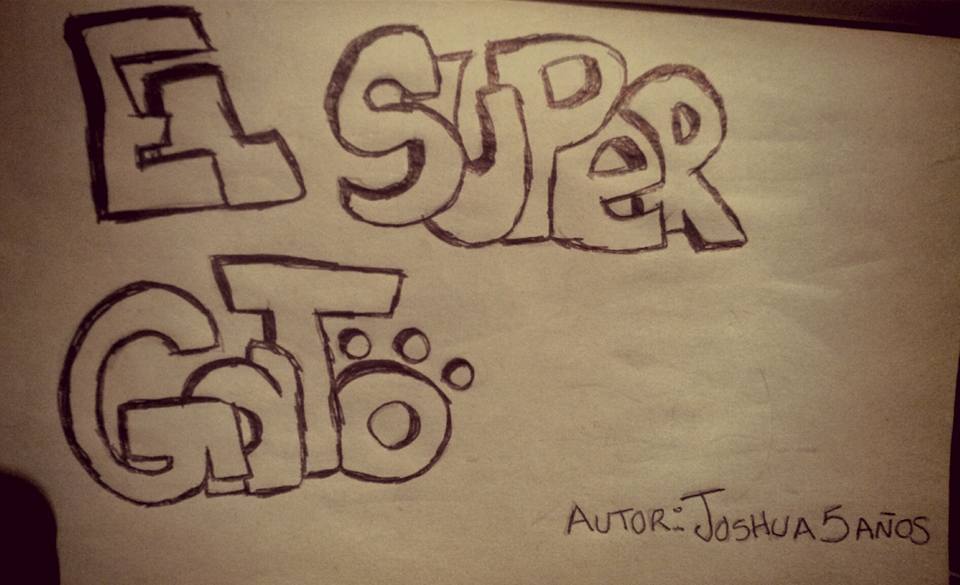 El SUPeR
GaTo
AUTOR: JOSHUA 5 AÑOS